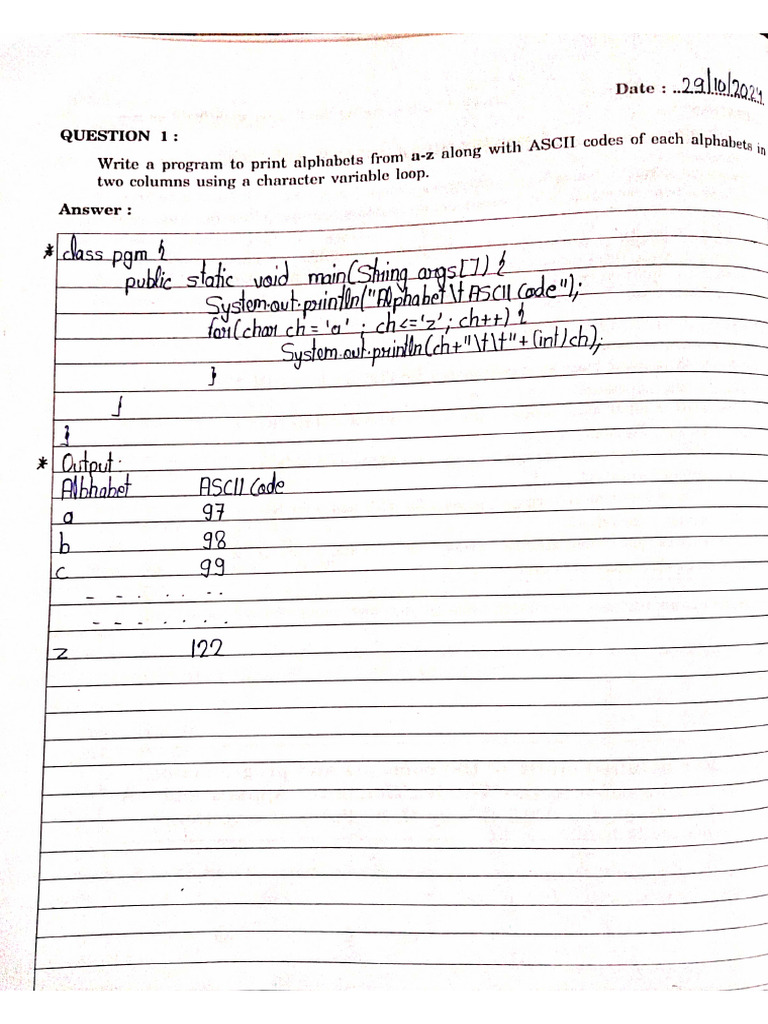 Date : ..29/10/2024
QUESTION 1 :
Write a program to print alphabets from a-z along with ASCII codes of each alphabets in
two columns using a character variable loop.
Answer :
* class pgm {
public static void main(String args[]) {
System.out.println("Alphabet\t ASCII Code");
for(char ch = 'a' ; ch<='z' ; ch++) {
System.out.println(ch+"\t\t"+(int)ch);
}
}
}
* Output:
Albhabet ASCII Code
a 97
b 98
c 99
- - . . . . .
- - - . . . .
z 122